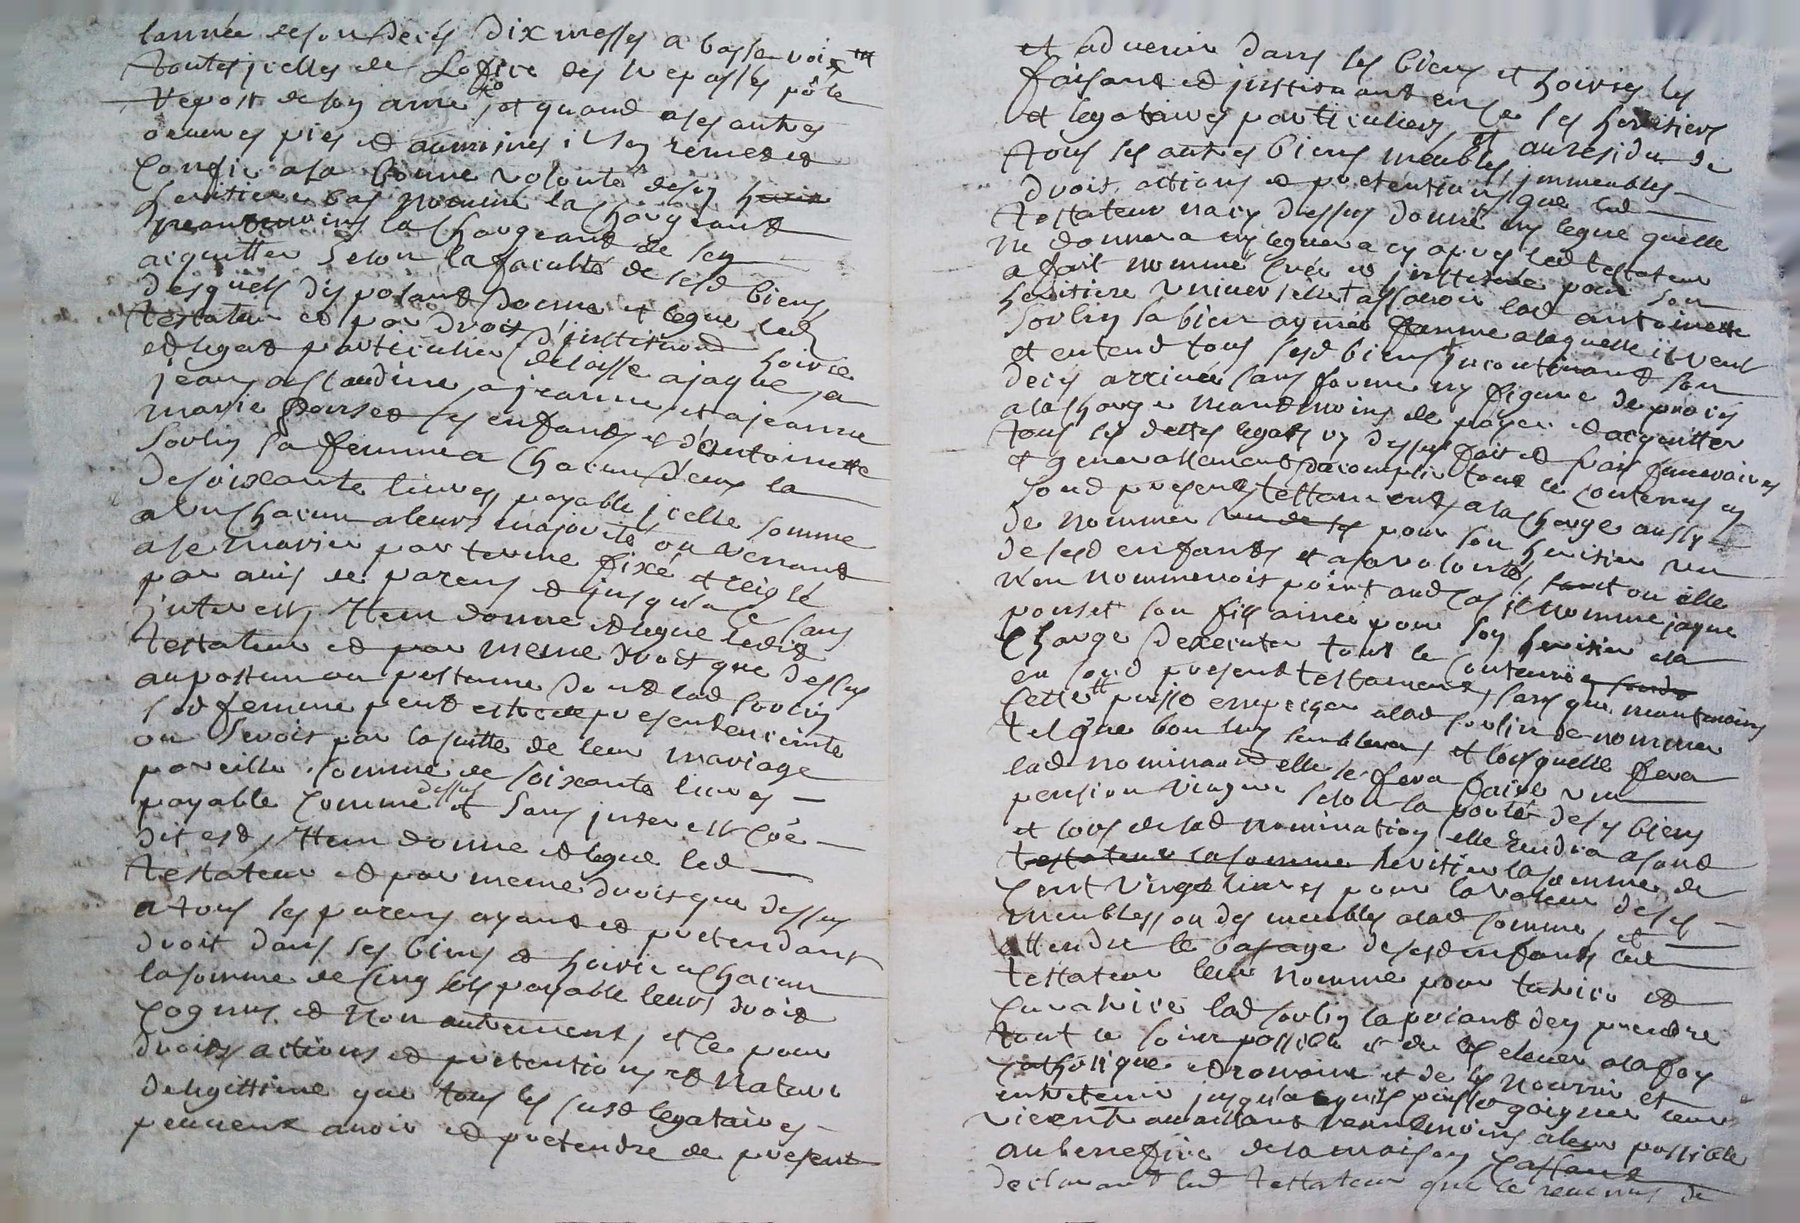 lannée de son deces dix messes a basse voix
toutes jcelles de Loffice des trepassés po le
repost de son ame et quand a ses autres
oeuures pies et aumosnes il sen remet et
confie a la bonne volonté de son
heritiere bas nommé la chargeant
neantmoins la chargeant de sen
acquitter selon la faculté de sesd biens
desquels disposant donne et legue led
testateur et par droit d'institution hoirie
et legat particulier delaisse a jaque a
jean a claudine a jeanne et a jeanne
marie ponset ses enfants et d'antoinette
soulin sa femme a chacun d'eux la
de soixante liures payable jcelle somme
a un chacun a leurs majorité ou venant
a se marier par terme fixé et reiglé
par auis de parens et jusqu'a ce sans
jnterests Item donne et legue ledit
testateur et par meme droit que dessus
au postumou postume dont lad soulin
sad femme peut estre de present enceinte
ou seroit par la suitte de leur mariage
pareille somme de soixante liures
payable comme dessus et sans jnterest coe
dit est, Item donne et legue led
testateur et par meme droit que dessus
a tous les parens ayant et pretendant
droit dans ses biens et hoirie a chacun
la somme de cinq sols payable leurs droit
cognus et non autrement, et ce pour
droits actions et pretentions et nature
de legittime que tous les susd legataires
peuuent auoir et pretendre de present
et aduenir dans ses biens et hoiries les
faisant et jnstituant en ce ses heritiers
et legataires particuliers, et au residu de
tous ses autres biens meubles, jmmeubles
droit, actions et pretentions que led
testateur na cy dessus donné ny legué quelle
ne donnera ny leguera cy apres led testateur
a fait nommé créé et jnstitué pour son
heritiere vniuerselle assauoir lad antoinette
soulin sa bien aymée femme a laquelle il veut
et entend tous sesd biens jncontinant son
deces arriuer sans forme ny figure de proces
a la charge neantmoins de payer et acquitter
tous ses dettes legats cy dessus fait et frais funeraires
et generallement dacomplir tout le contenus en
sond present testament, a la charge aussy
de nommer pour son heritier un
de sesd enfants et a sa volonté, ou elle
n'en nommeroit point aud cas il nomme jaque
ponset son fils ainé pour son heritier a la
charge dexecuter tout le contenu
en sond present testament, sans que neantmoins
cette puisse empecher a lad soulin de nommer
tel que bon luy semblera, et lors quelle fera
lad nomination elle se fera faire une
pension viagere selon la porté de ses biens
et lors de lad nomination elle rendra a sond
testateur la somme heritier la somme de
cent vingt liures pour la valeur de ses
meubles ou des meubles a lad somme, et
attendu le bas age de sesd enfants led
testateur leur nomme pour tutrice et
curatrice lad soulin la priant den prendre
tout le soin possible et de les eleuer a la foy
catholique et romaine et de les nourrir et
entretenir jusqu'a ce quils puisse gaigner leur
vie en trauaillant neantmoins a leur possible
au benefice de la maison
declarant led testateur que le reuenus de